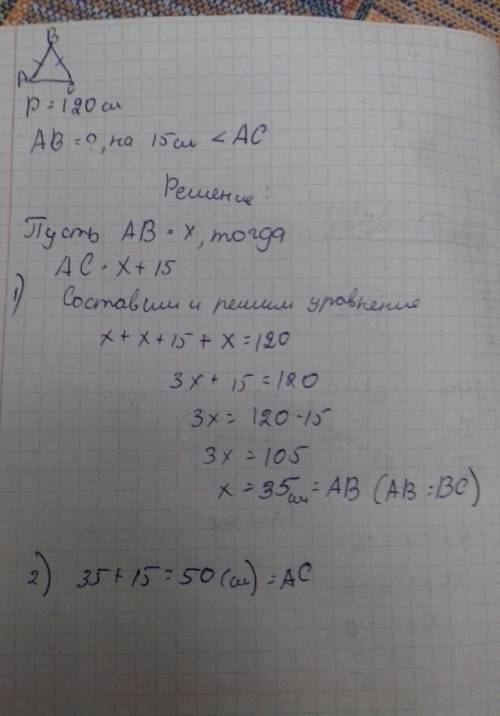 B
A C
P = 120 см
AB = ?, на 15 см < AC
Решение:
Пусть AB = x, тогда
AC = x + 15
1) Составим и решим уравнение
x + x + 15 + x = 120
3x + 15 = 120
3x = 120 - 15
3x = 105
x = 35 см = AB (AB = BC)
2) 35 + 15 = 50 (см) = AC